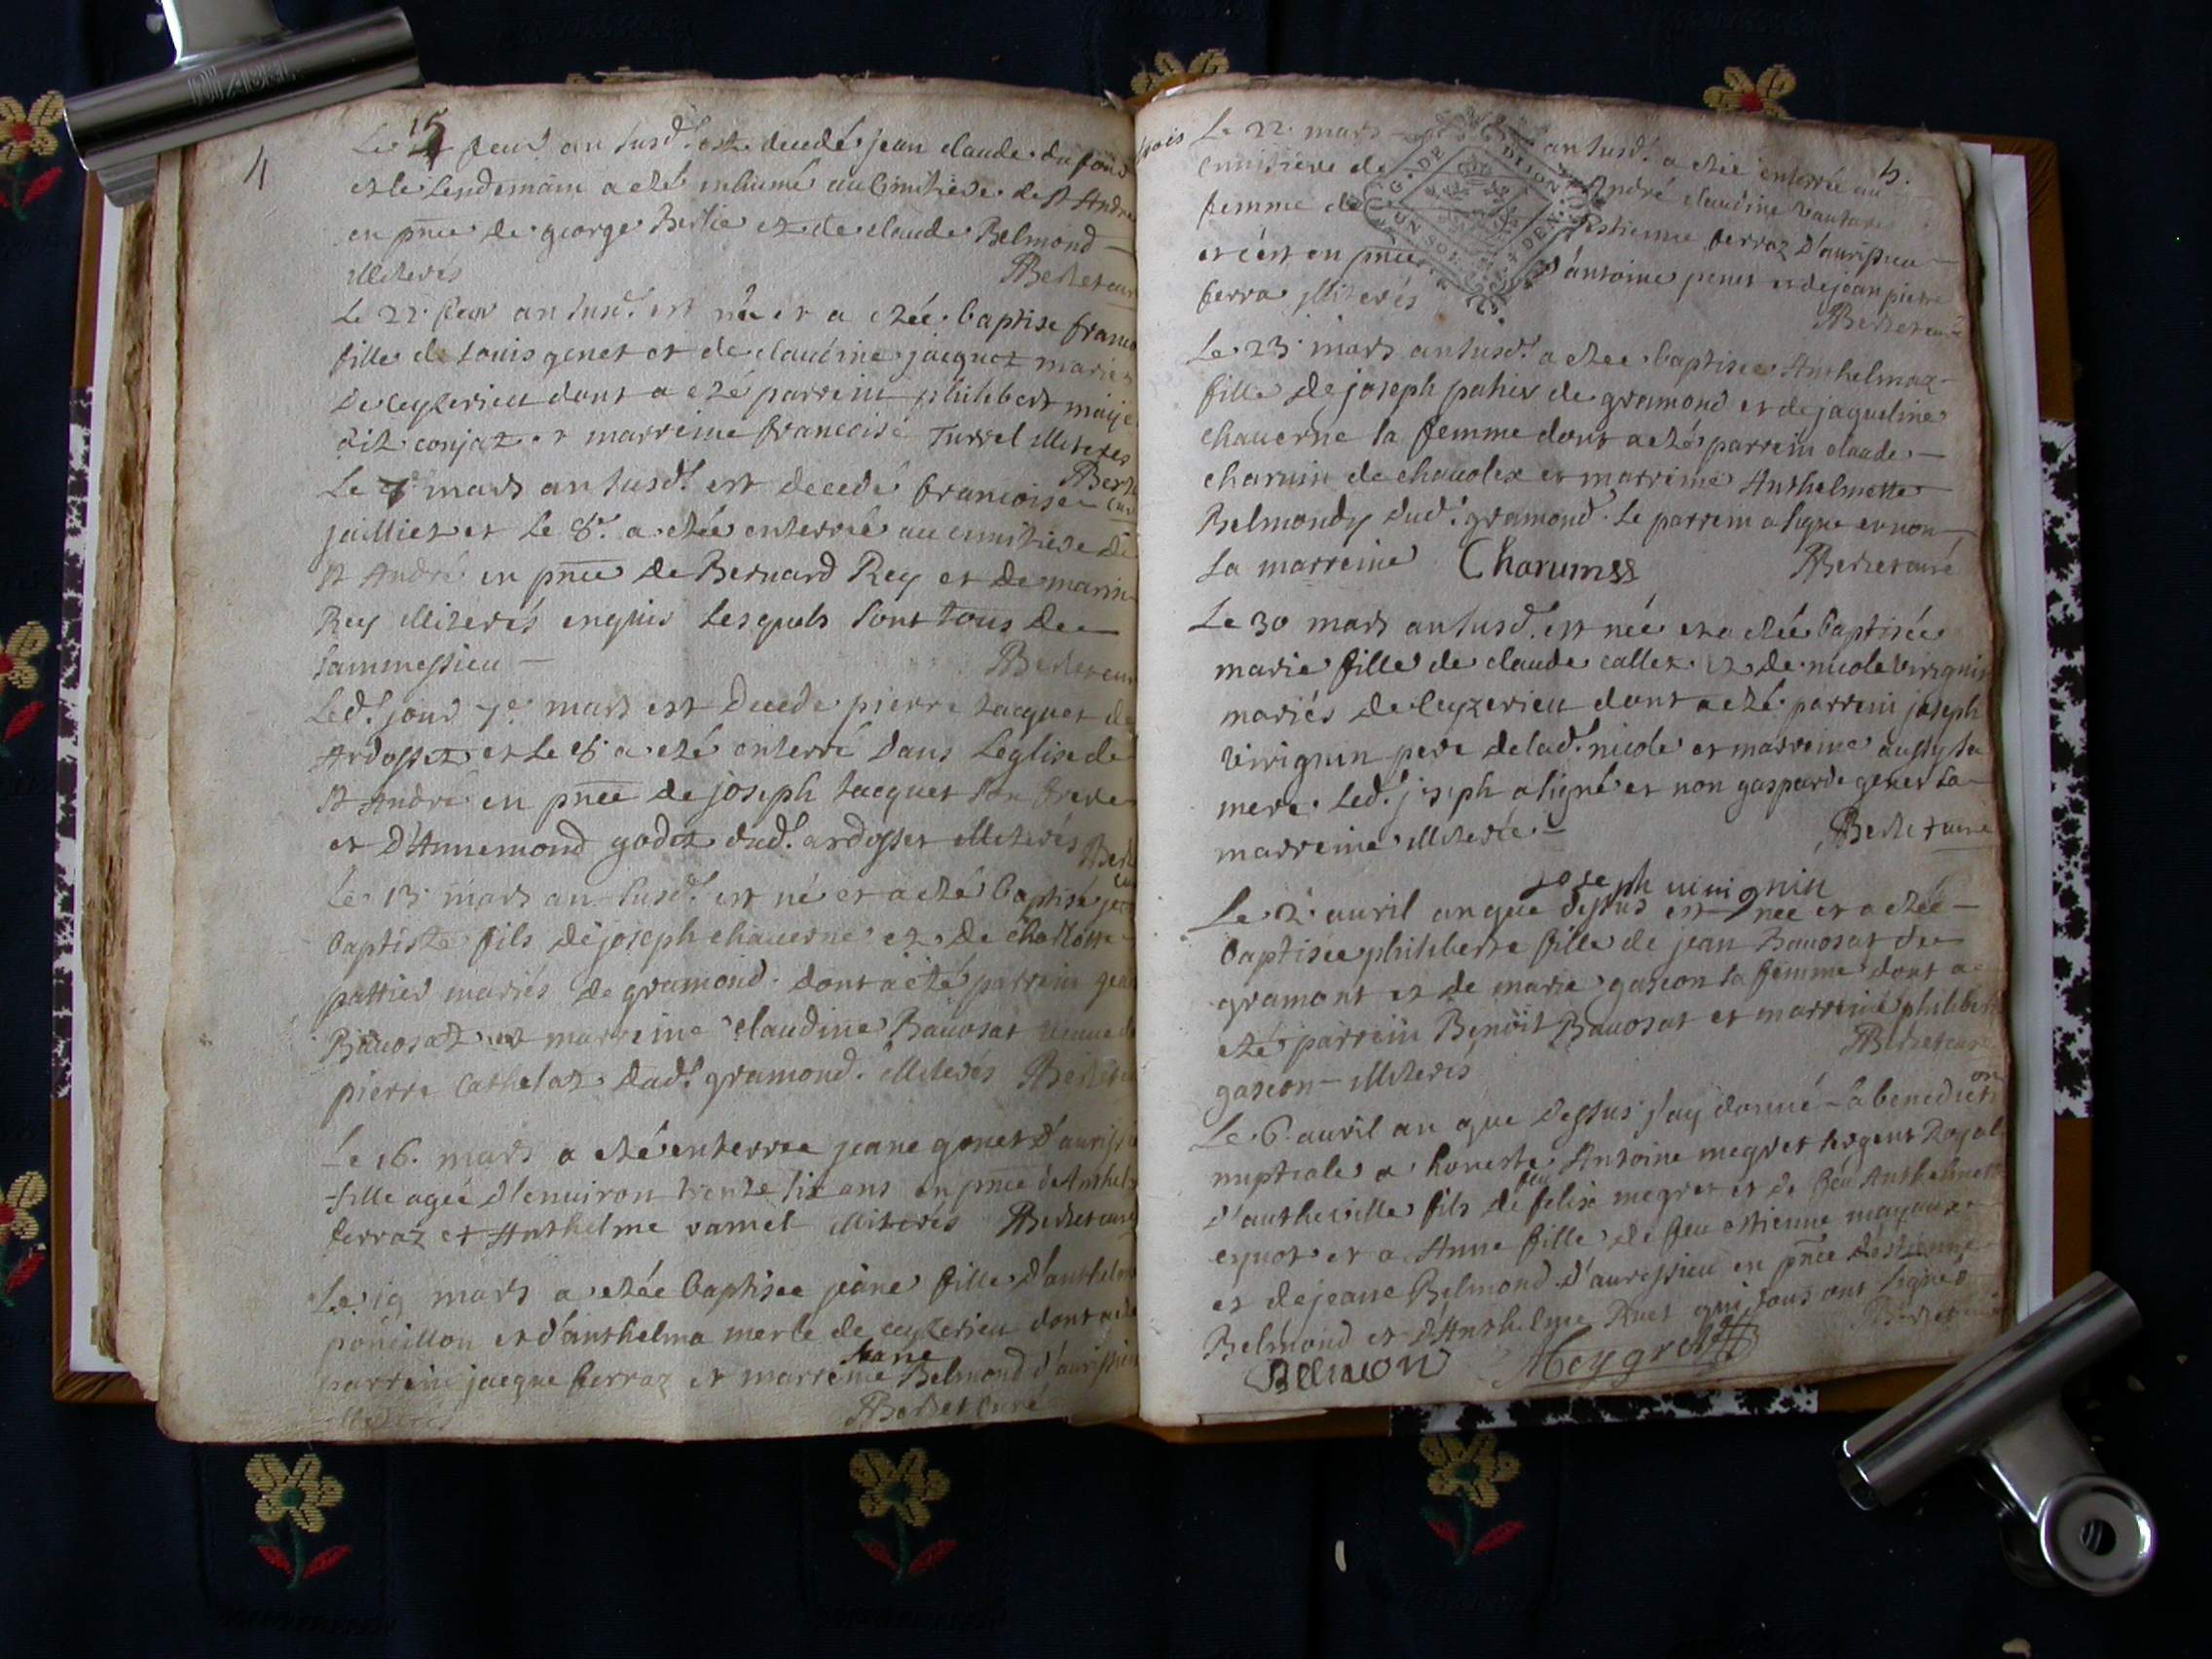 4
15
Le feur an susd.t est decedé jean claude du four
et le lendemain a eté inhumé au cimitiere de st André
en pnce de george Bertie et de claude Belmond
illiterés Bertet curé
Le 22 feur an susd.t est née et a etée baptise
fille de Louis genet et de claudine jacquet mariés
de ceyzerieu dont a eté parrein philibert
dit conjaz et marreine francoise Turrel illiteres
Le 7e mars an susd.t est decedé francoise
jailliet et le 8e a etée enterrée au cimitiere de
st André en pnce de Bernard Rey et de marin
Rey illiterés enquis lesquels sont tous de
sammessieu Bertet curé
Led.t jour 7e mars est decede pierre tacquet de
Ardosset et le 8 a eté enterré dans leglise de
st André en pnce de joseph tacquet son frere
et d'Annemond godet dud.t ardosset illiterés
Le 13 mars an susd.t est né et a eté baptisé jean
baptiste fils de joseph chauerne et de charlotte
pattier mariés de gramond dont a eté parrein jean
Bauosat et marreine claudine Bauosat veuue de
pierre Cathelaz dud.t gramond illiterés Bertet
Le 16 mars a eté enterree jeane genet d'aurissieu
fille agée d'enuiron trente six ans en pnce d'Anthelme
ferraz et Anthelme ramel illiterés Bertet curé
Le 19 mars a etée baptisee jeane fille d'anthelme
poncillon et d'anthelma merle de ceyzerieu dont a eté
jeane
parrein jacque ferraz et marreine Belmond d'aurissieu
illiterés Bertet curé
5.
Le 22 mars an susd.t a etée enterrée au
G. DE DIJON
cimitiere de André claudine
femme de estienne ferraz d'aurissieu
UN SOL DEN
et c'est en pnce d'antoine penet et de jean pierre
ferra illiterés Bertet curé
Le 23 mars an susd.t a etée baptisee Anthelmaz
fille de joseph de gramond et de jaqueline
chauerne sa femme dont a eté parrein claude
charuin de chauolex et marreine Anthelmette
Belmondy dud.t gramond. le parrein a signe et non
la marreine Bertet curé
Le 30 mars an susd.t est née et a etée baptisée
marie fille de claude callet et de nicole virignin
mariés de ceyzerieu dont a eté parrein joseph
virignin pere de lad.t nicole et marreine aussy sa
mere. Led.t joseph a signé et non gasparde genet la
marreine illiterée Bertet curé
joseph uirignin
Le 2 auril an que dessus est née et a etée
baptisée philiberte fille de jean Bauosat de
gramont et de marie gascon sa femme dont a
eté parrein Benoit Bauosat et marreine philiberte
gascon illiterés Bertet curé
Le 6 auril an que dessus j'ay donné la benediction
nuptiale a honeste Antoine megret sergent Royal
feu
d'antheville fils de felix megret et de feu Anthelmette
et a Anne fille de feu estienne
et de jeane Belmond d'auressieu en pnce d'estienne
Belmond et d'Anthelme Ruet qui tous ont signés
Bellmon Meygret Bertet curé